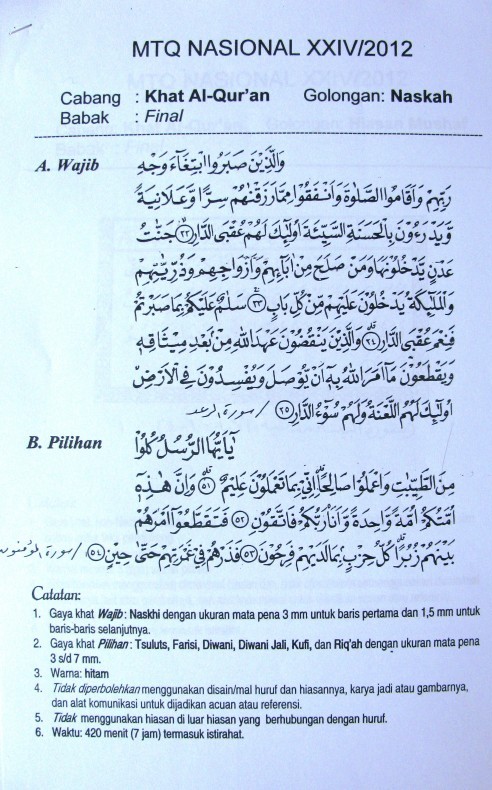 MTQ NASIONAL XXIV/2012
Cabang : Khat Al-Qur'an Golongan: Naskah
Babak : Final
A. Wajib
وَالَّذِيْنَ صَبَرُوا ابْتِغَاۤءَ وَجْهِ
رَبِّهِمْ وَاَقَامُوا الصَّلٰوةَ وَاَنْفَقُوْا مِمَّا رَزَقْنٰهُمْ سِرًّا وَّعَلَانِيَةً
وَّيَدْرَءُوْنَ بِالْحَسَنَةِ السَّيِّئَةَ اُولٰۤىِٕكَ لَهُمْ عُقْبَى الدَّارِ ٢٢ جَنّٰتُ
عَدْنٍ يَّدْخُلُوْنَهَا وَمَنْ صَلَحَ مِنْ اٰبَاۤىِٕهِمْ وَاَزْوَاجِهِمْ وَذُرِّيّٰتِهِمْ
وَالْمَلٰۤىِٕكَةُ يَدْخُلُوْنَ عَلَيْهِمْ مِّنْ كُلِّ بَابٍ ٢٣ سَلٰمٌ عَلَيْكُمْ بِمَا صَبَرْتُمْ
فَنِعْمَ عُقْبَى الدَّارِ ٢٤ وَالَّذِيْنَ يَنْقُضُوْنَ عَهْدَ اللّٰهِ مِنْ بَعْدِ مِيْثَاقِهٖ
وَيَقْطَعُوْنَ مَآ اَمَرَ اللّٰهُ بِهٖٓ اَنْ يُّوْصَلَ وَيُفْسِدُوْنَ فِى الْاَرْضِ
اُولٰۤىِٕكَ لَهُمُ اللَّعْنَةُ وَلَهُمْ سُوْۤءُ الدَّارِ ٢٥ / سورة الرعد
B. Pilihan
يٰٓاَيُّهَا الرُّسُلُ كُلُوْا
مِنَ الطَّيِّبٰتِ وَاعْمَلُوْا صَالِحًا اِنِّيْ بِمَا تَعْمَلُوْنَ عَلِيْمٌ ٥١ وَاِنَّ هٰذِهٖٓ
اُمَّتُكُمْ اُمَّةً وَّاحِدَةً وَّاَنَا۠ رَبُّكُمْ فَاتَّقُوْنِ ٥٢ فَتَقَطَّعُوْٓا اَمْرَهُمْ
بَيْنَهُمْ زُبُرًا كُلُّ حِزْبٍۢ بِمَا لَدَيْهِمْ فَرِحُوْنَ ٥٣ فَذَرْهُمْ فِيْ غَمْرَتِهِمْ حَتّٰى حِيْنٍ ٥٤ / سورة المؤمنون
Catatan:
1. Gaya khat Wajib: Naskhi dengan ukuran mata pena 3 mm untuk baris pertama dan 1,5 mm untuk
baris-baris selanjutnya.
2. Gaya khat Pilihan : Tsuluts, Farisi, Diwani, Diwani Jali, Kufi, dan Riq'ah dengan ukuran mata pena
3 s/d 7 mm.
3. Warna: hitam
4. Tidak diperbolehkan menggunakan disain/mal huruf dan hiasannya, karya jadi atau gambarnya,
dan alat komunikasi untuk dijadikan acuan atau referensi.
5. Tidak menggunakan hiasan di luar hiasan yang berhubungan dengan huruf.
6. Waktu: 420 menit (7 jam) termasuk istirahat.